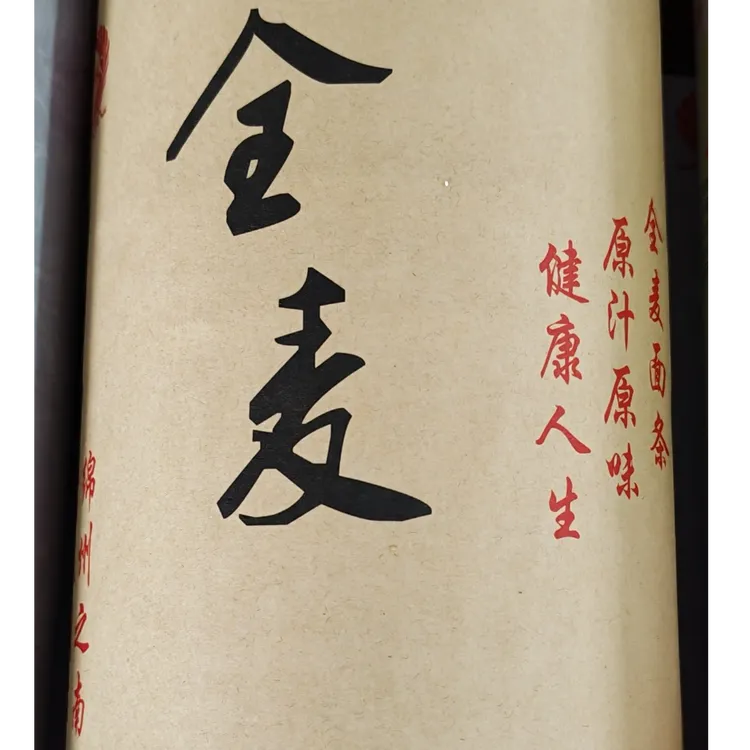 全麦面条
原汁原味
健康人生
全麦
绵州之南